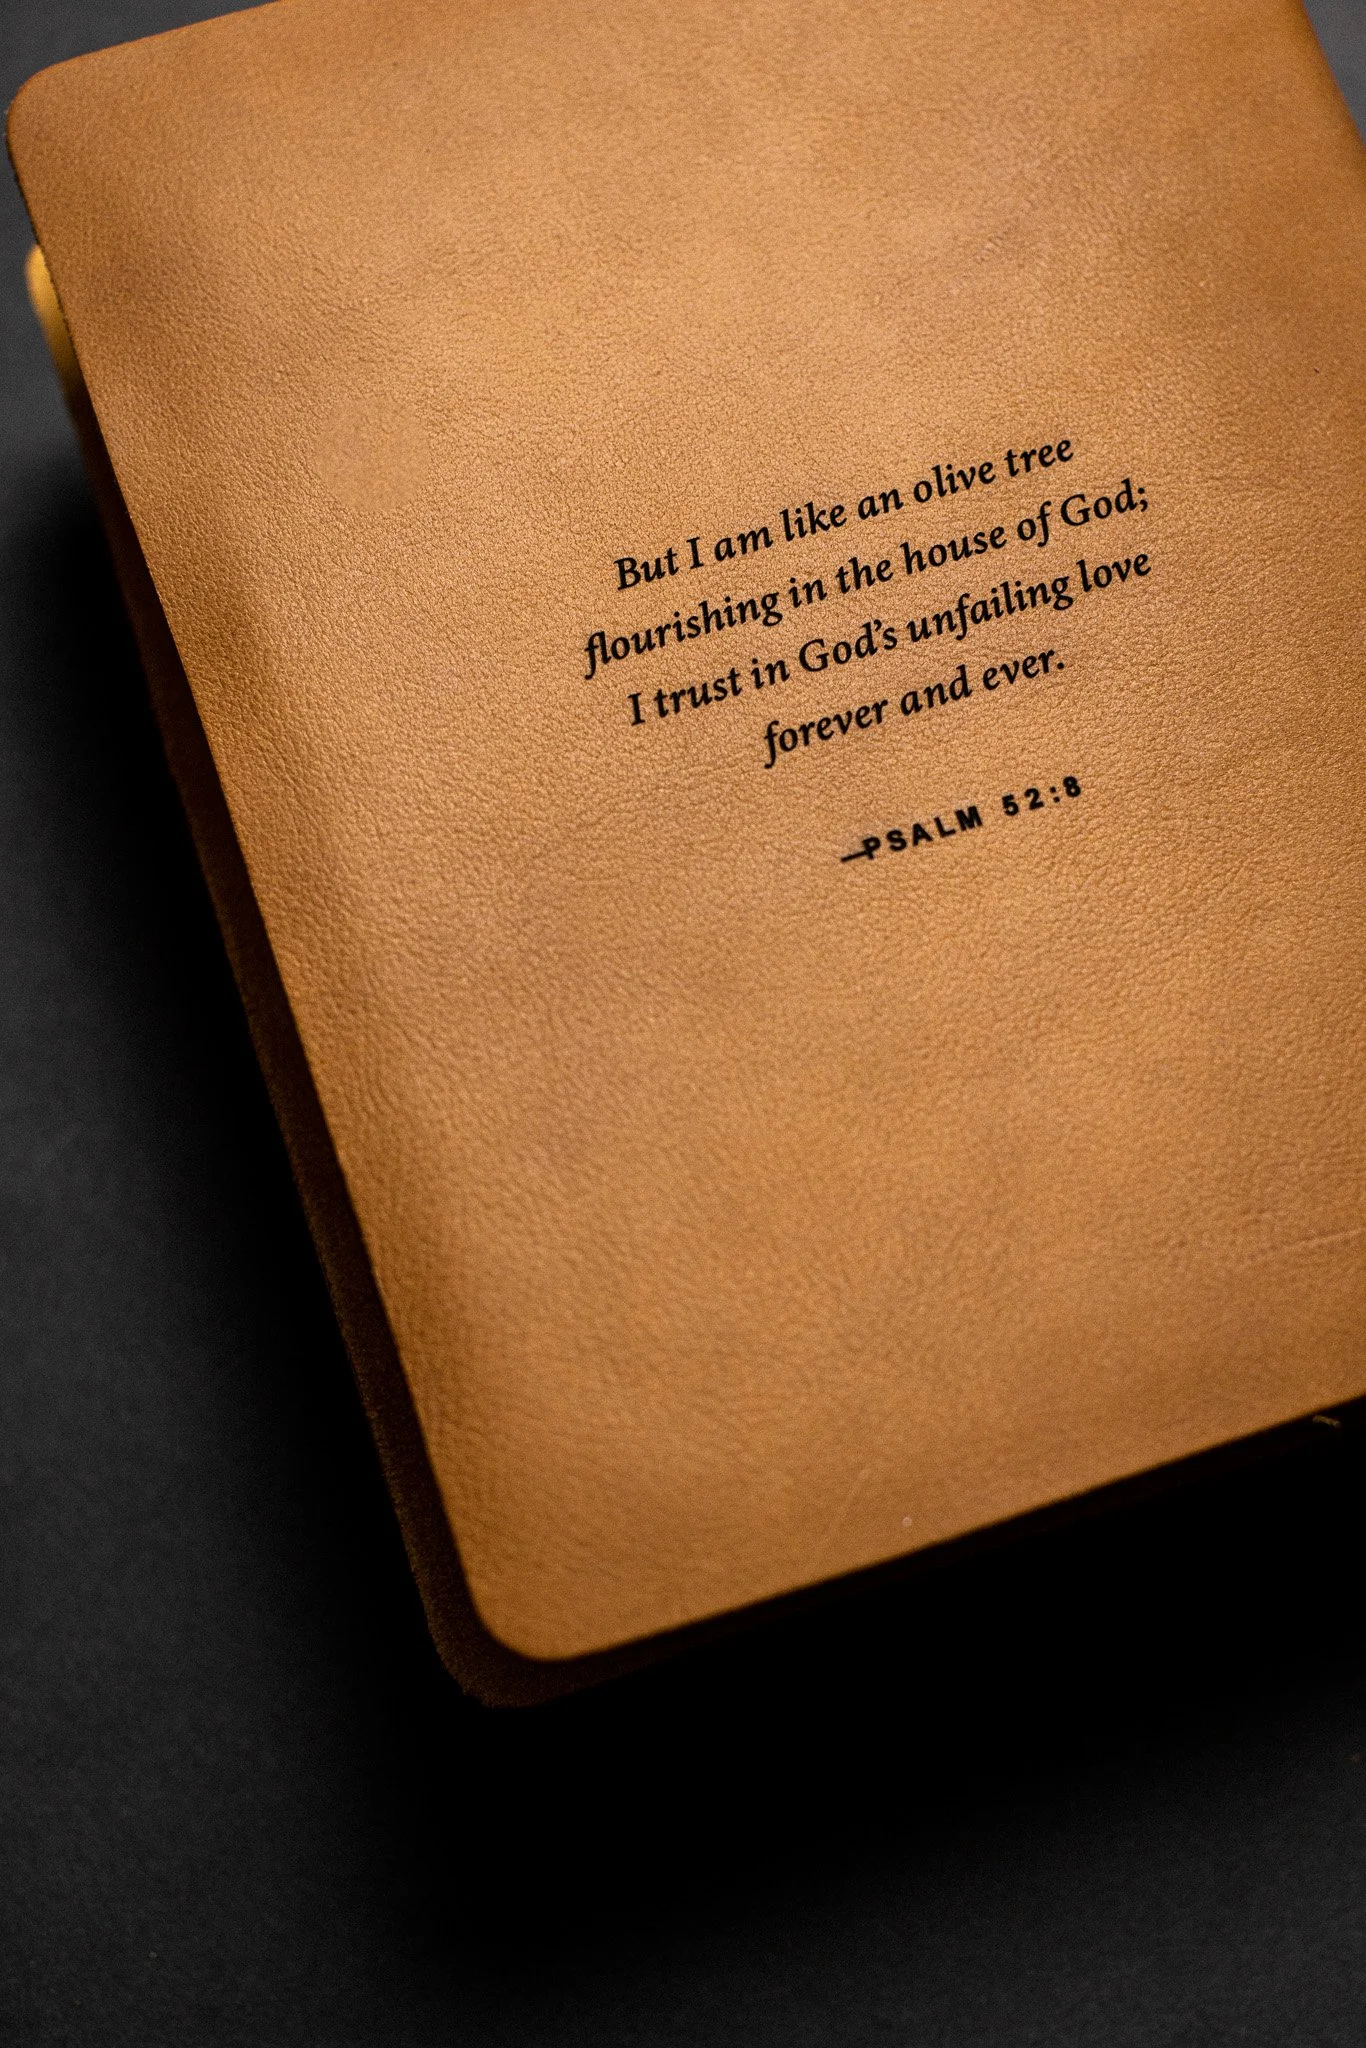 But I am like an olive tree
flourishing in the house of God;
I trust in God’s unfailing love
forever and ever.
—PSALM 52:8